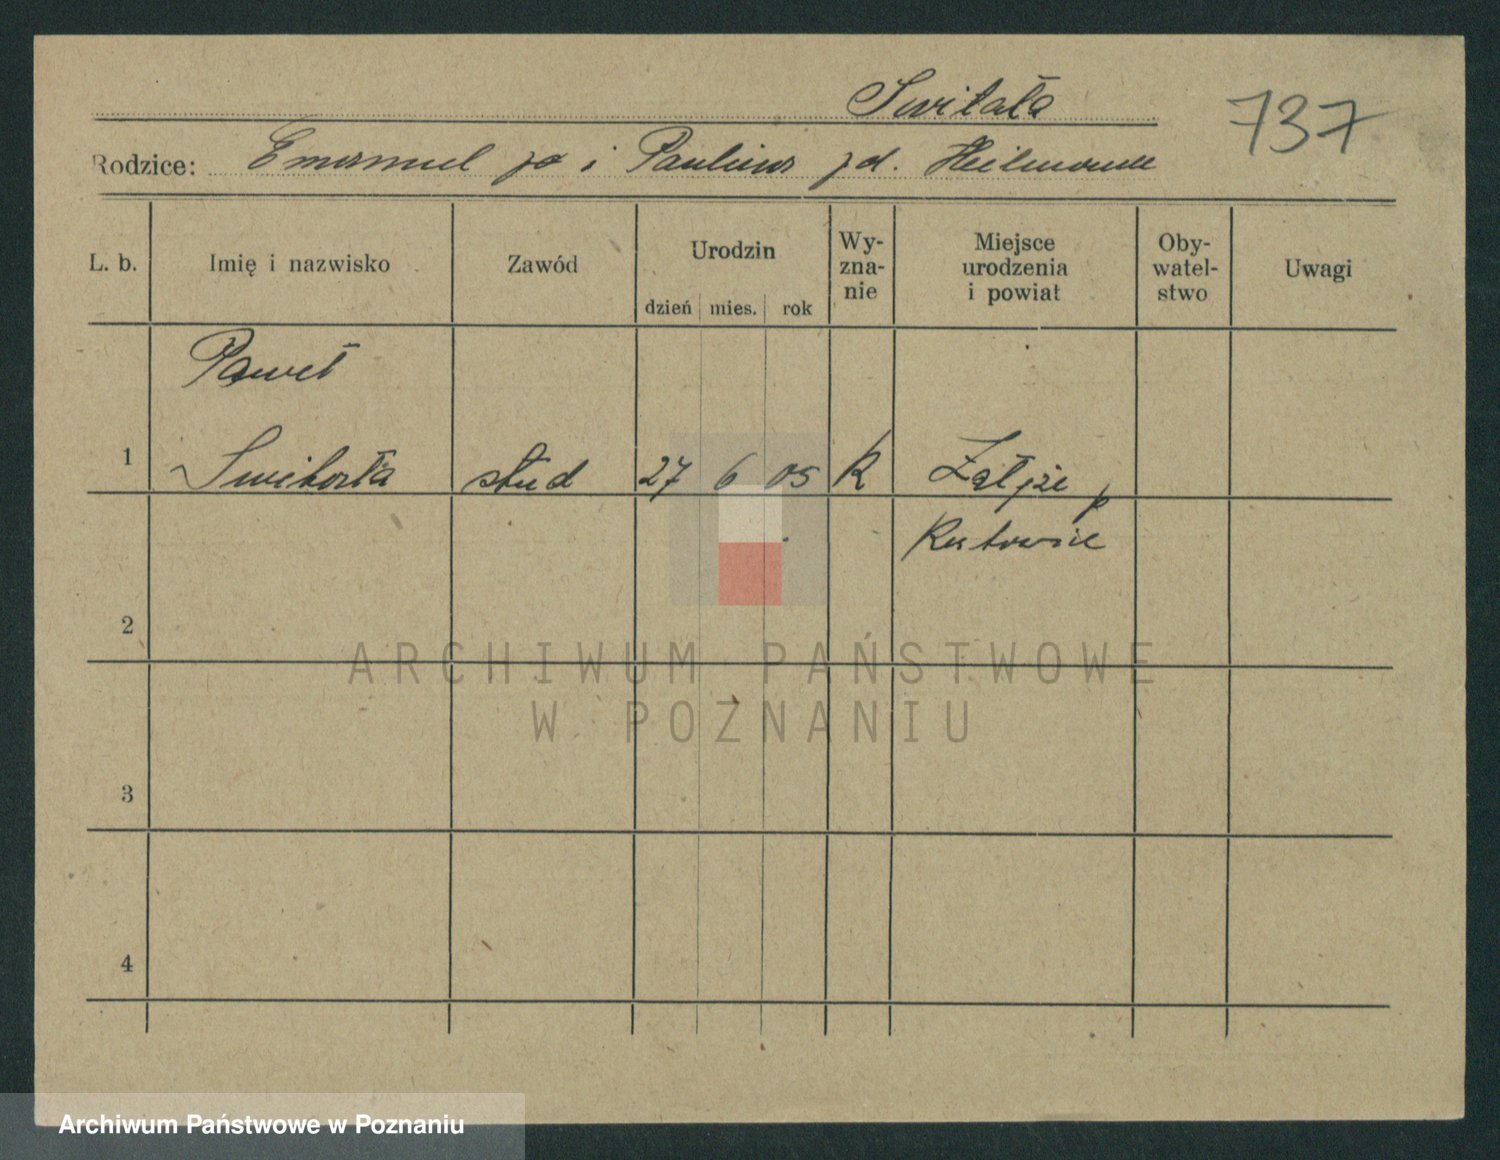 Switała
737
Rodzice: Emanuel i Paulina zd. Heilmann
L. b. Imię i nazwisko Zawód Urodzin dzień mies. rok Wy-zna-nie Miejsce urodzenia i powiat Oby-watel-stwo Uwagi
Paweł
1 Switała stud 27 6 05 k Załęże p
Katowice
2
3
4
ARCHIWUM PAŃSTWOWE
W POZNANIU
Archiwum Państwowe w Poznaniu